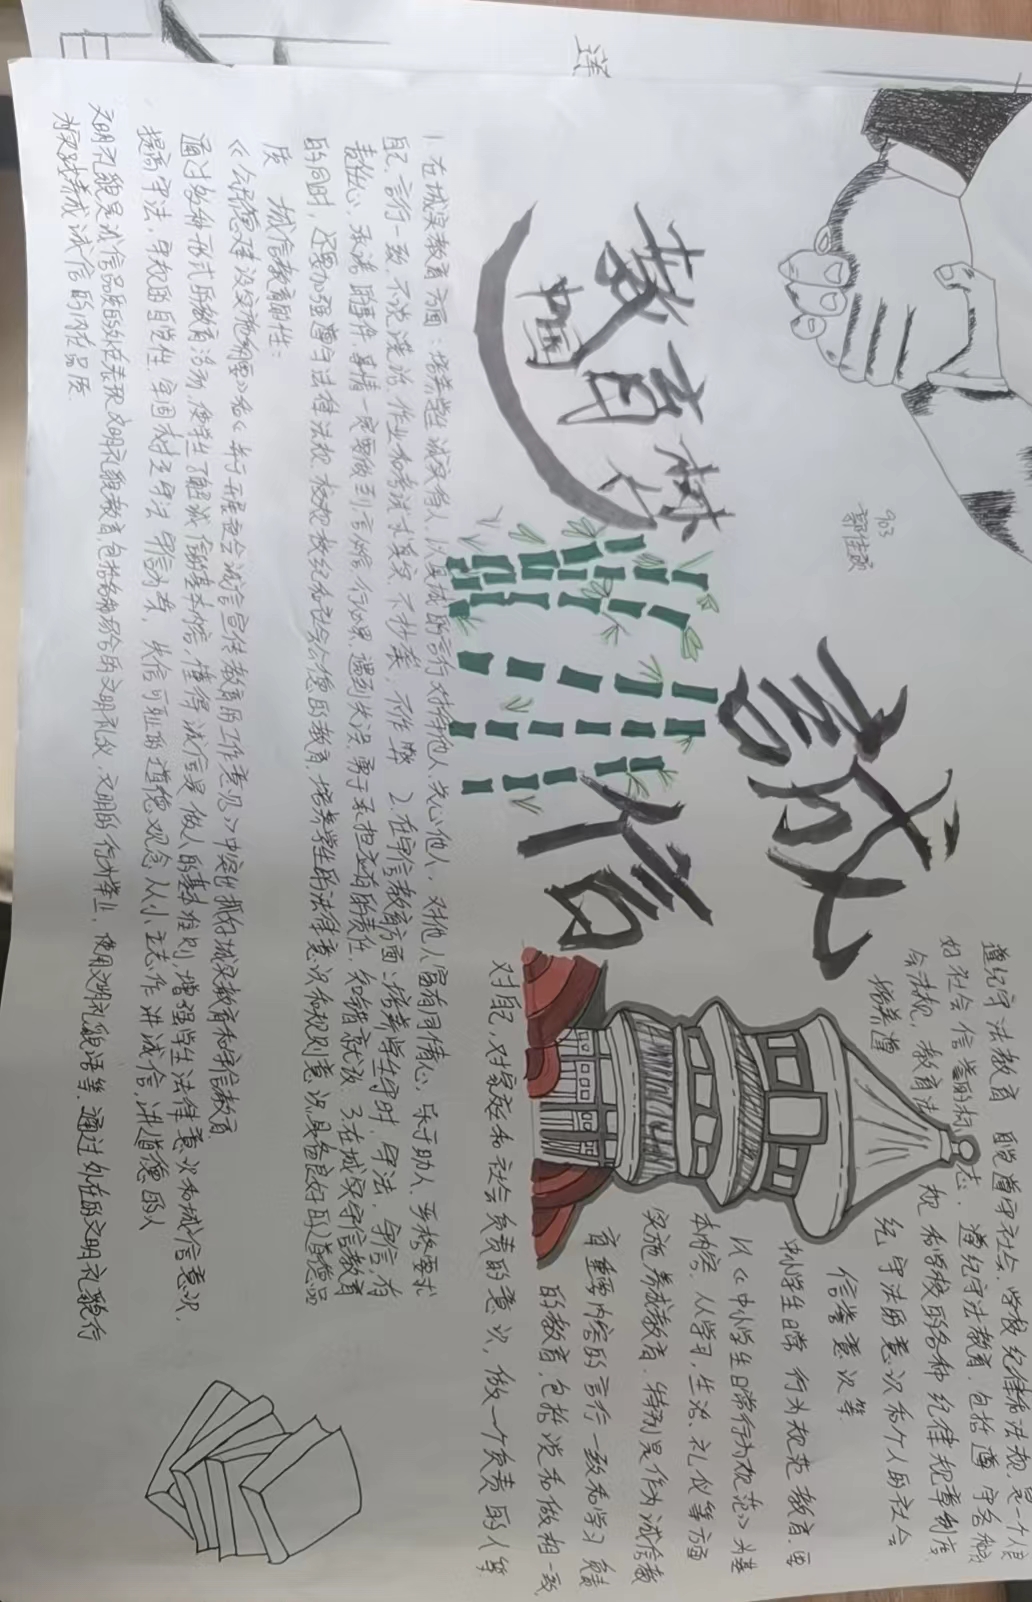 903
诚
信
教育林
中国
遵纪守法教育 自觉遵守社会、学校纪律和法规,是一个良
好社会信誉的标志,遵纪守法教育,包括遵守各种
会法规,教育法规和学校的各种纪律规章制度
培养遵纪守法的意识和个人的社会
信誉意识等
中小学生日常行为规范教育.要
以《中小学生日常行为规范》为基
本内容,从学习,生活、礼仪等方面
实施养成教育.特别是作为诚信教
育重要内容的言行一致和学习
的教育,包括说和做相一致,
对自己,对家庭和社会负责的意识,做一个负责的人等
1.在诚实教育方面:培养学生诚实待人,以真诚的言行对待他人、关心他人,对他人富有同情心,乐于助人.要严格要求
自己,言行一致,不说谎话,作业和考试求真实,不抄袭,不作弊 2.在守信教育方面:培养学生守时,守法,守信,有
责任心,承诺的事情一定要做到,言必信,行必果,遇到失误,勇于承担应有的责任,知错就改 3.在诚实守信教育
的同时,还要加强遵守法律法规,校规校纪和社会公德的教育,培养学生的法律意识和规则意识,具备良好的道德品
质 诚信教育的性:
《公民道德建设实施纲要》和《关于开展社会诚信宣传教育的工作意见》中突出抓好诚实教育和守信教育
通过多种形式的教育活动,使学生了解诚信的基本内容,懂得诚信是做人的基本准则,增强学生法律意识和诚信意识,
提高守法,守规的自觉性 牢固树立守法 守信为荣,失信可耻的道德观念,从小立志作讲诚信,讲道德的人
文明礼貌是诚信品质的外在表现,文明礼貌教育,包括各种场合的文明礼仪,文明的行为举止,使用文明礼貌语等,通过外在的文明礼貌行
为实践养成诚信的内在品质